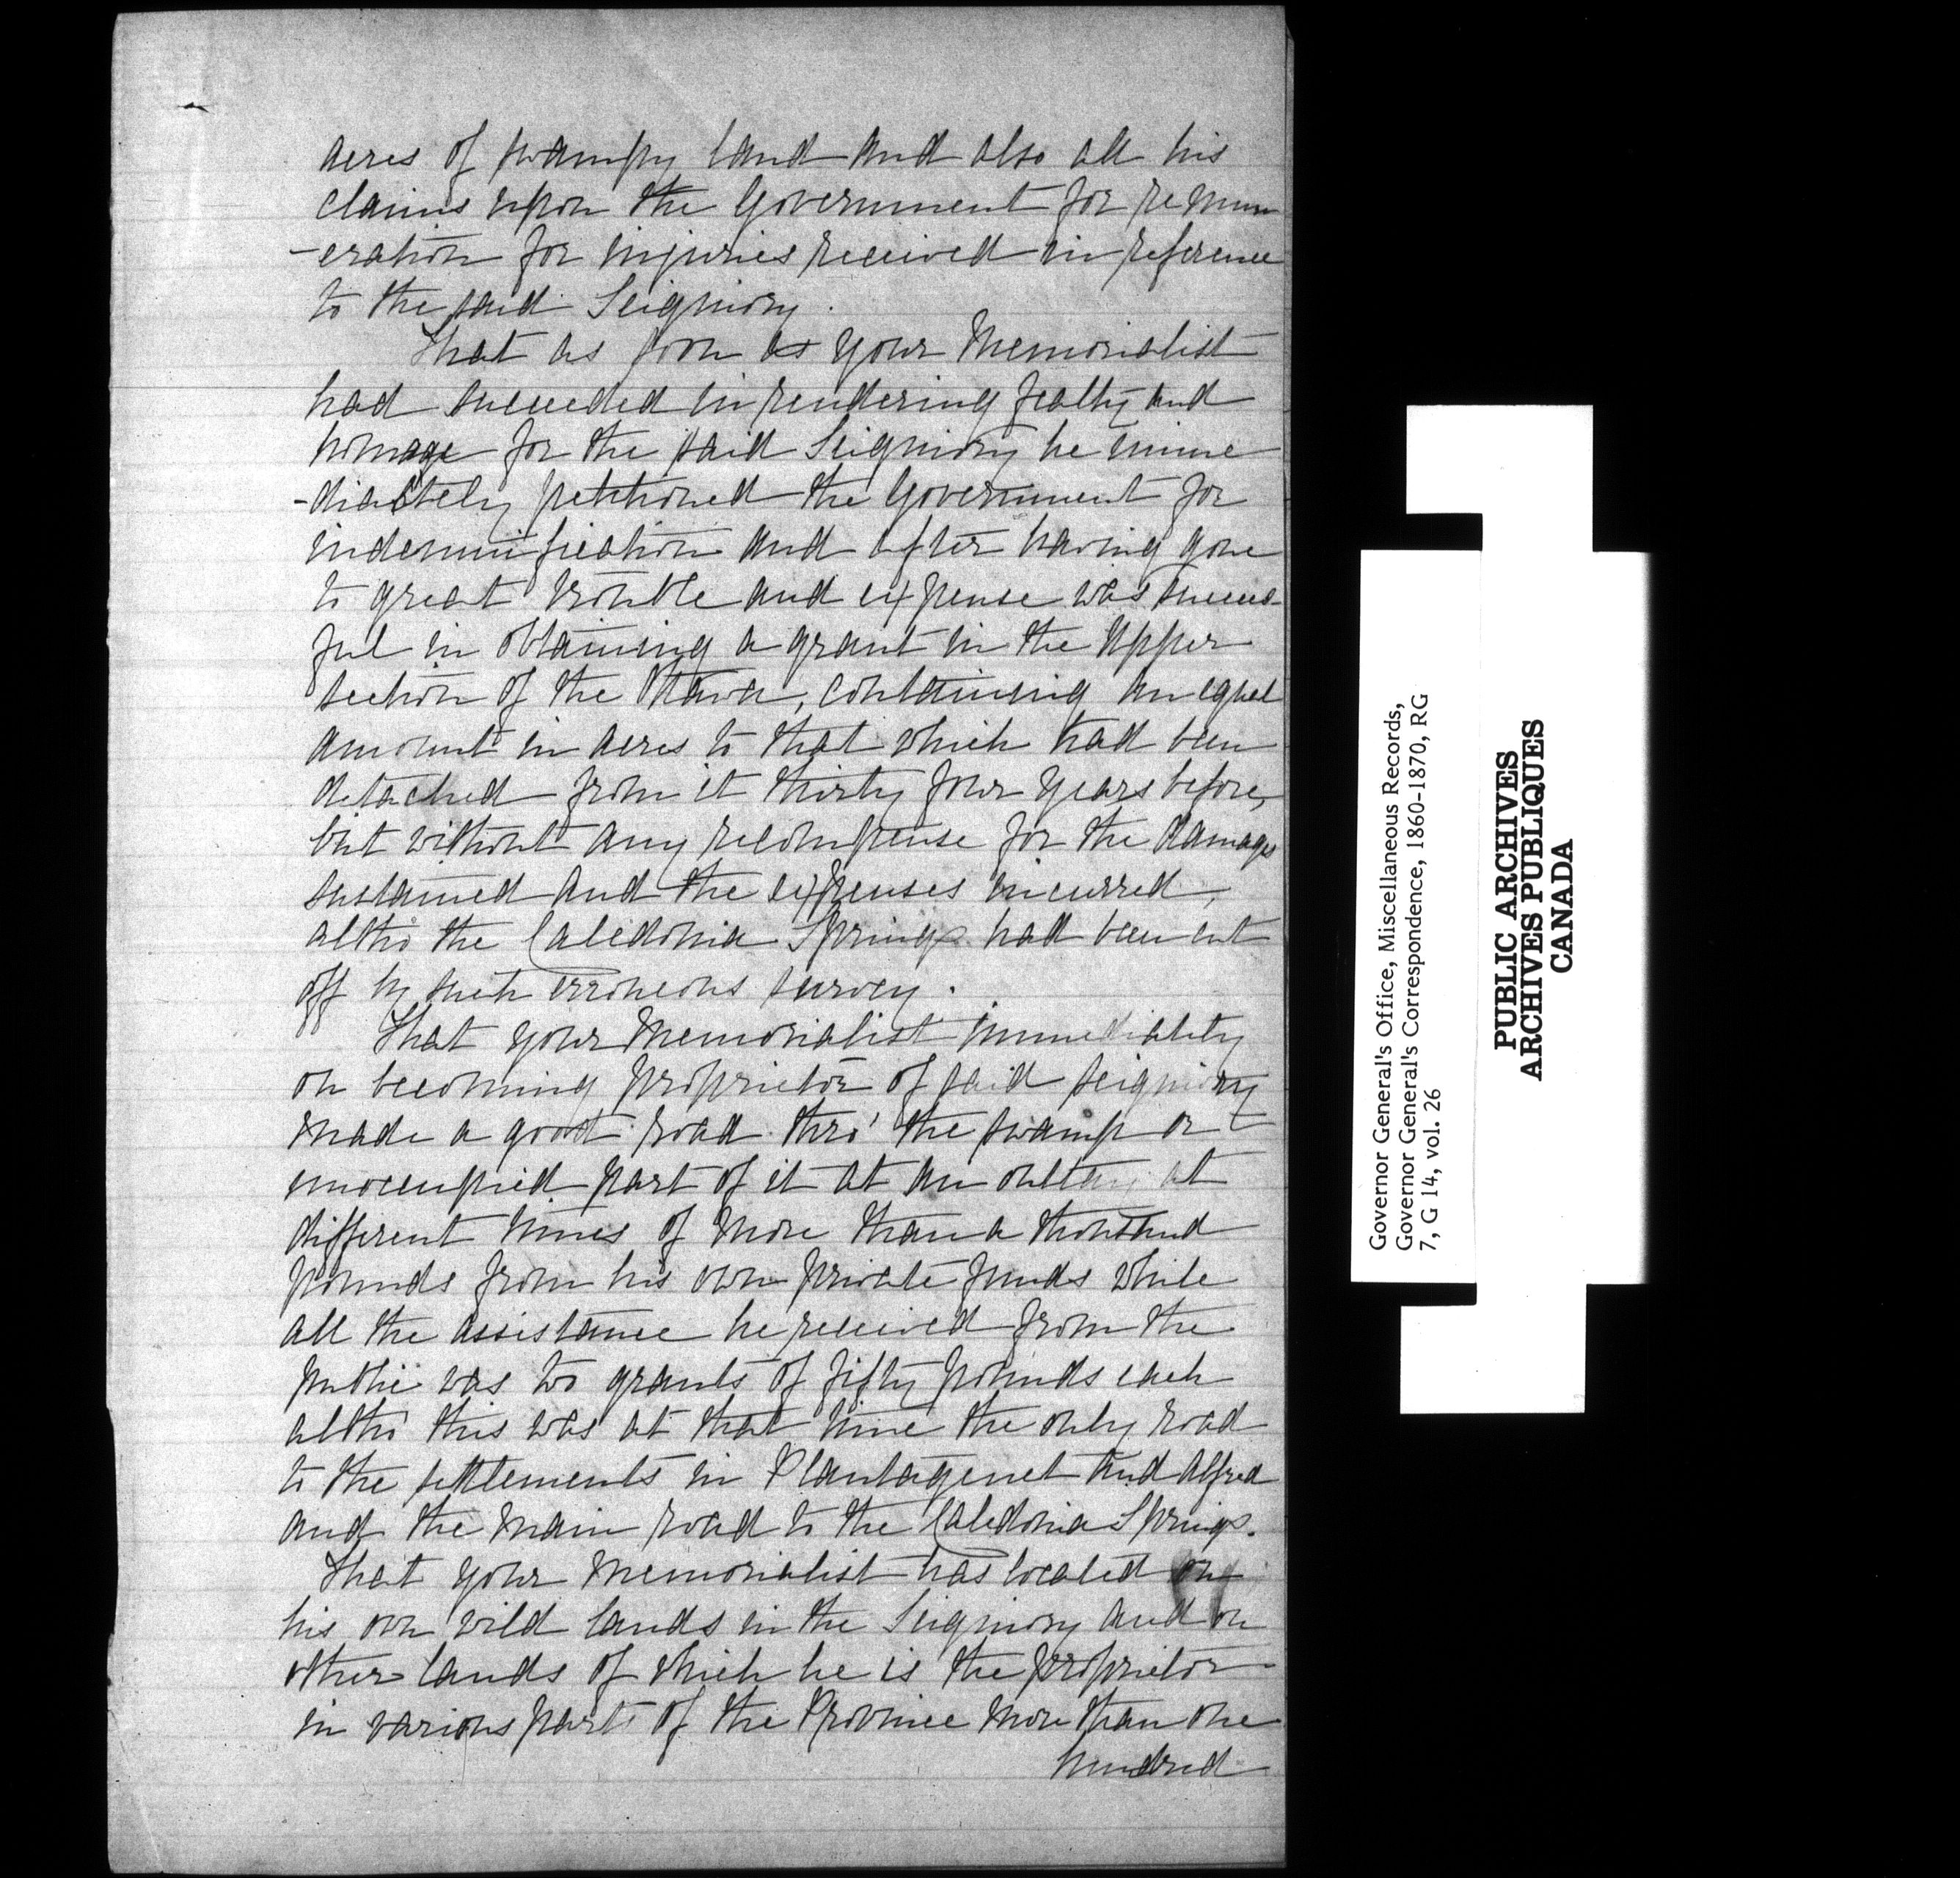 acres of swampy land and also all his
claims upon the Government for remun
-eration for injuries received in reference
to the said Seigniory.
That as soon as your Memorialist
had succeeded in rendering fealty and
homage for the said Seigniory he imme
-diately petitioned the Government for
indemnification and after having gone
to great trouble and expense was success-
ful in obtaining a grant in the upper
section of the Ottawa, containing an equal
amount in acres to that which had been
detached from it thirty four years before,
but without any recompense for the damages
sustained and the expenses incurred,
altho the Caledonia Springs had been cut
off by such erroneous survey.
That your Memorialist immediately
on becoming proprietor of said seigniory
made a good road thro' the swamp or
unoccupied part of it at an outlay at
different times of more than a thousand
pounds from his own private funds while
all the assistance he received from the
public was two grants of fifty pounds each
altho' this was at that time the only road
to the settlements in Plantagenet and Alfred
and the main road to the Caledonia Springs.
That your Memorialist has located on
his own wild lands in the Seigniory and on
other lands of which he is the proprietor
in various parts of the Province more than one
hundred
Governor General's Office, Miscellaneous Records,
Governor General's Correspondence, 1860-1870, RG
7, G 14, vol. 26
PUBLIC ARCHIVES
ARCHIVES PUBLIQUES
CANADA